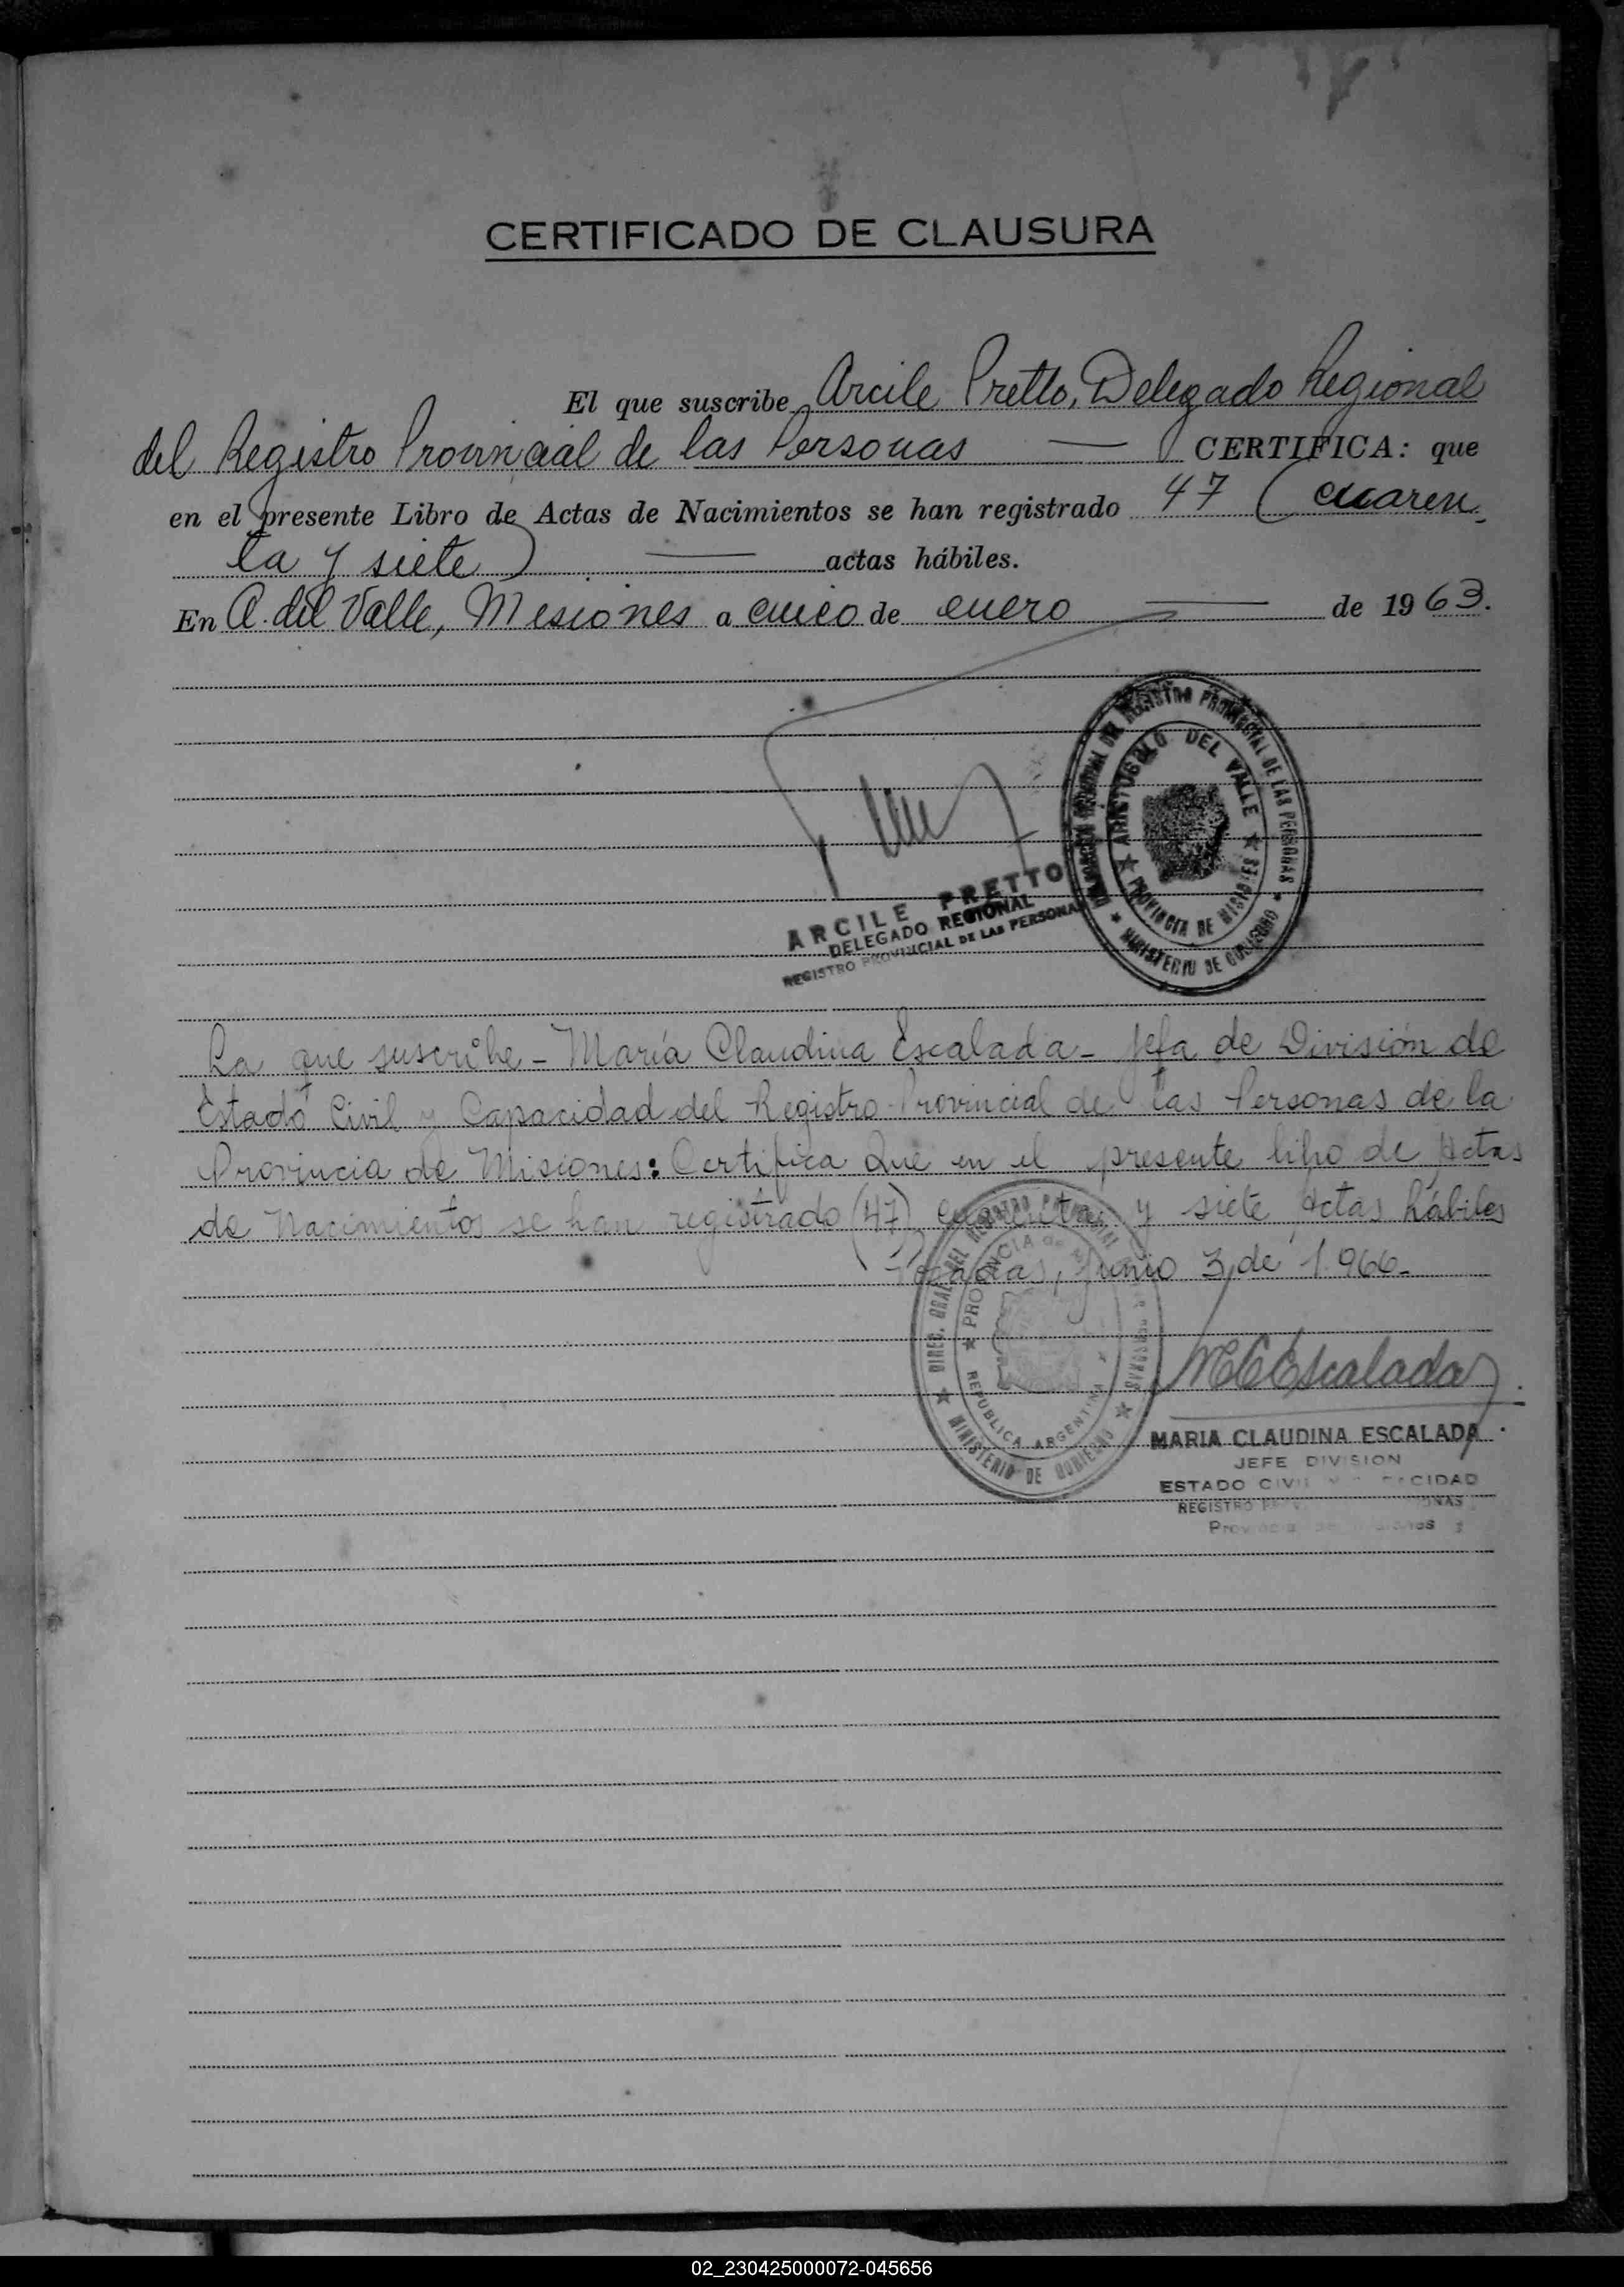 CERTIFICADO DE CLAUSURA
El que suscribe Arcile Pretto, Delegado Regional
del Registro Provincial de las Personas — CERTIFICA: que
en el presente Libro de Actas de Nacimientos se han registrado 47 (cuaren
ta y siete) — actas hábiles.
En A. del Valle, Misiones a cinco de enero — de 1963.
REGISTRO PROVINCIAL DE LAS PERSONAS
ARISTOBULO DEL VALLE
PROVINCIA DE MISIONES
MINISTERIO DE GOBIERNO
ARCILE PRETTO
DELEGADO REGIONAL
REGISTRO PROVINCIAL DE LAS PERSONAS
La que suscribe - María Claudina Escalada - Jefa de División de
Estado Civil y Capacidad del Registro Provincial de las Personas de la
Provincia de Misiones: Certifica Que en el presente libro de Actas
de Nacimientos se han registrado (47) cuarenta y siete Actas hábiles
Posadas, Junio 3 de 1.966.-
DIREC. GRAL. DEL REGISTRO PROVINCIAL DE LAS PERSONAS
PROVINCIA de
REPUBLICA ARGENTINA
MINISTERIO DE GOBIERNO
MCEscalada
MARIA CLAUDINA ESCALADA
JEFE DIVISION
ESTADO CIVIL Y CAPACIDAD
REGISTRO
Provincia de Misiones
02_230425000072-045656